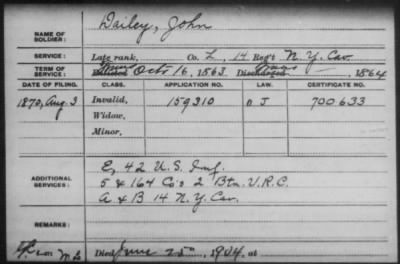 NAME OF SOLDIER: Dailey, John
SERVICE: Late rank, Co. L, 14 Reg't N. Y. Cav.
TERM OF SERVICE: Enlisted Oct 16, 1863. Discharged , 1864
DATE OF FILING. CLASS. APPLICATION NO. LAW. CERTIFICATE NO.
1870, Aug. 3 Invalid, 159210 J 700633
Widow,
Minor,
ADDITIONAL SERVICES: E, 42 U. S. Inf.
5 & 164 Co's 2 Btn. V.R.C.
A & B 14 N.Y. Cav.
REMARKS:
Died June 25th, 1904, at